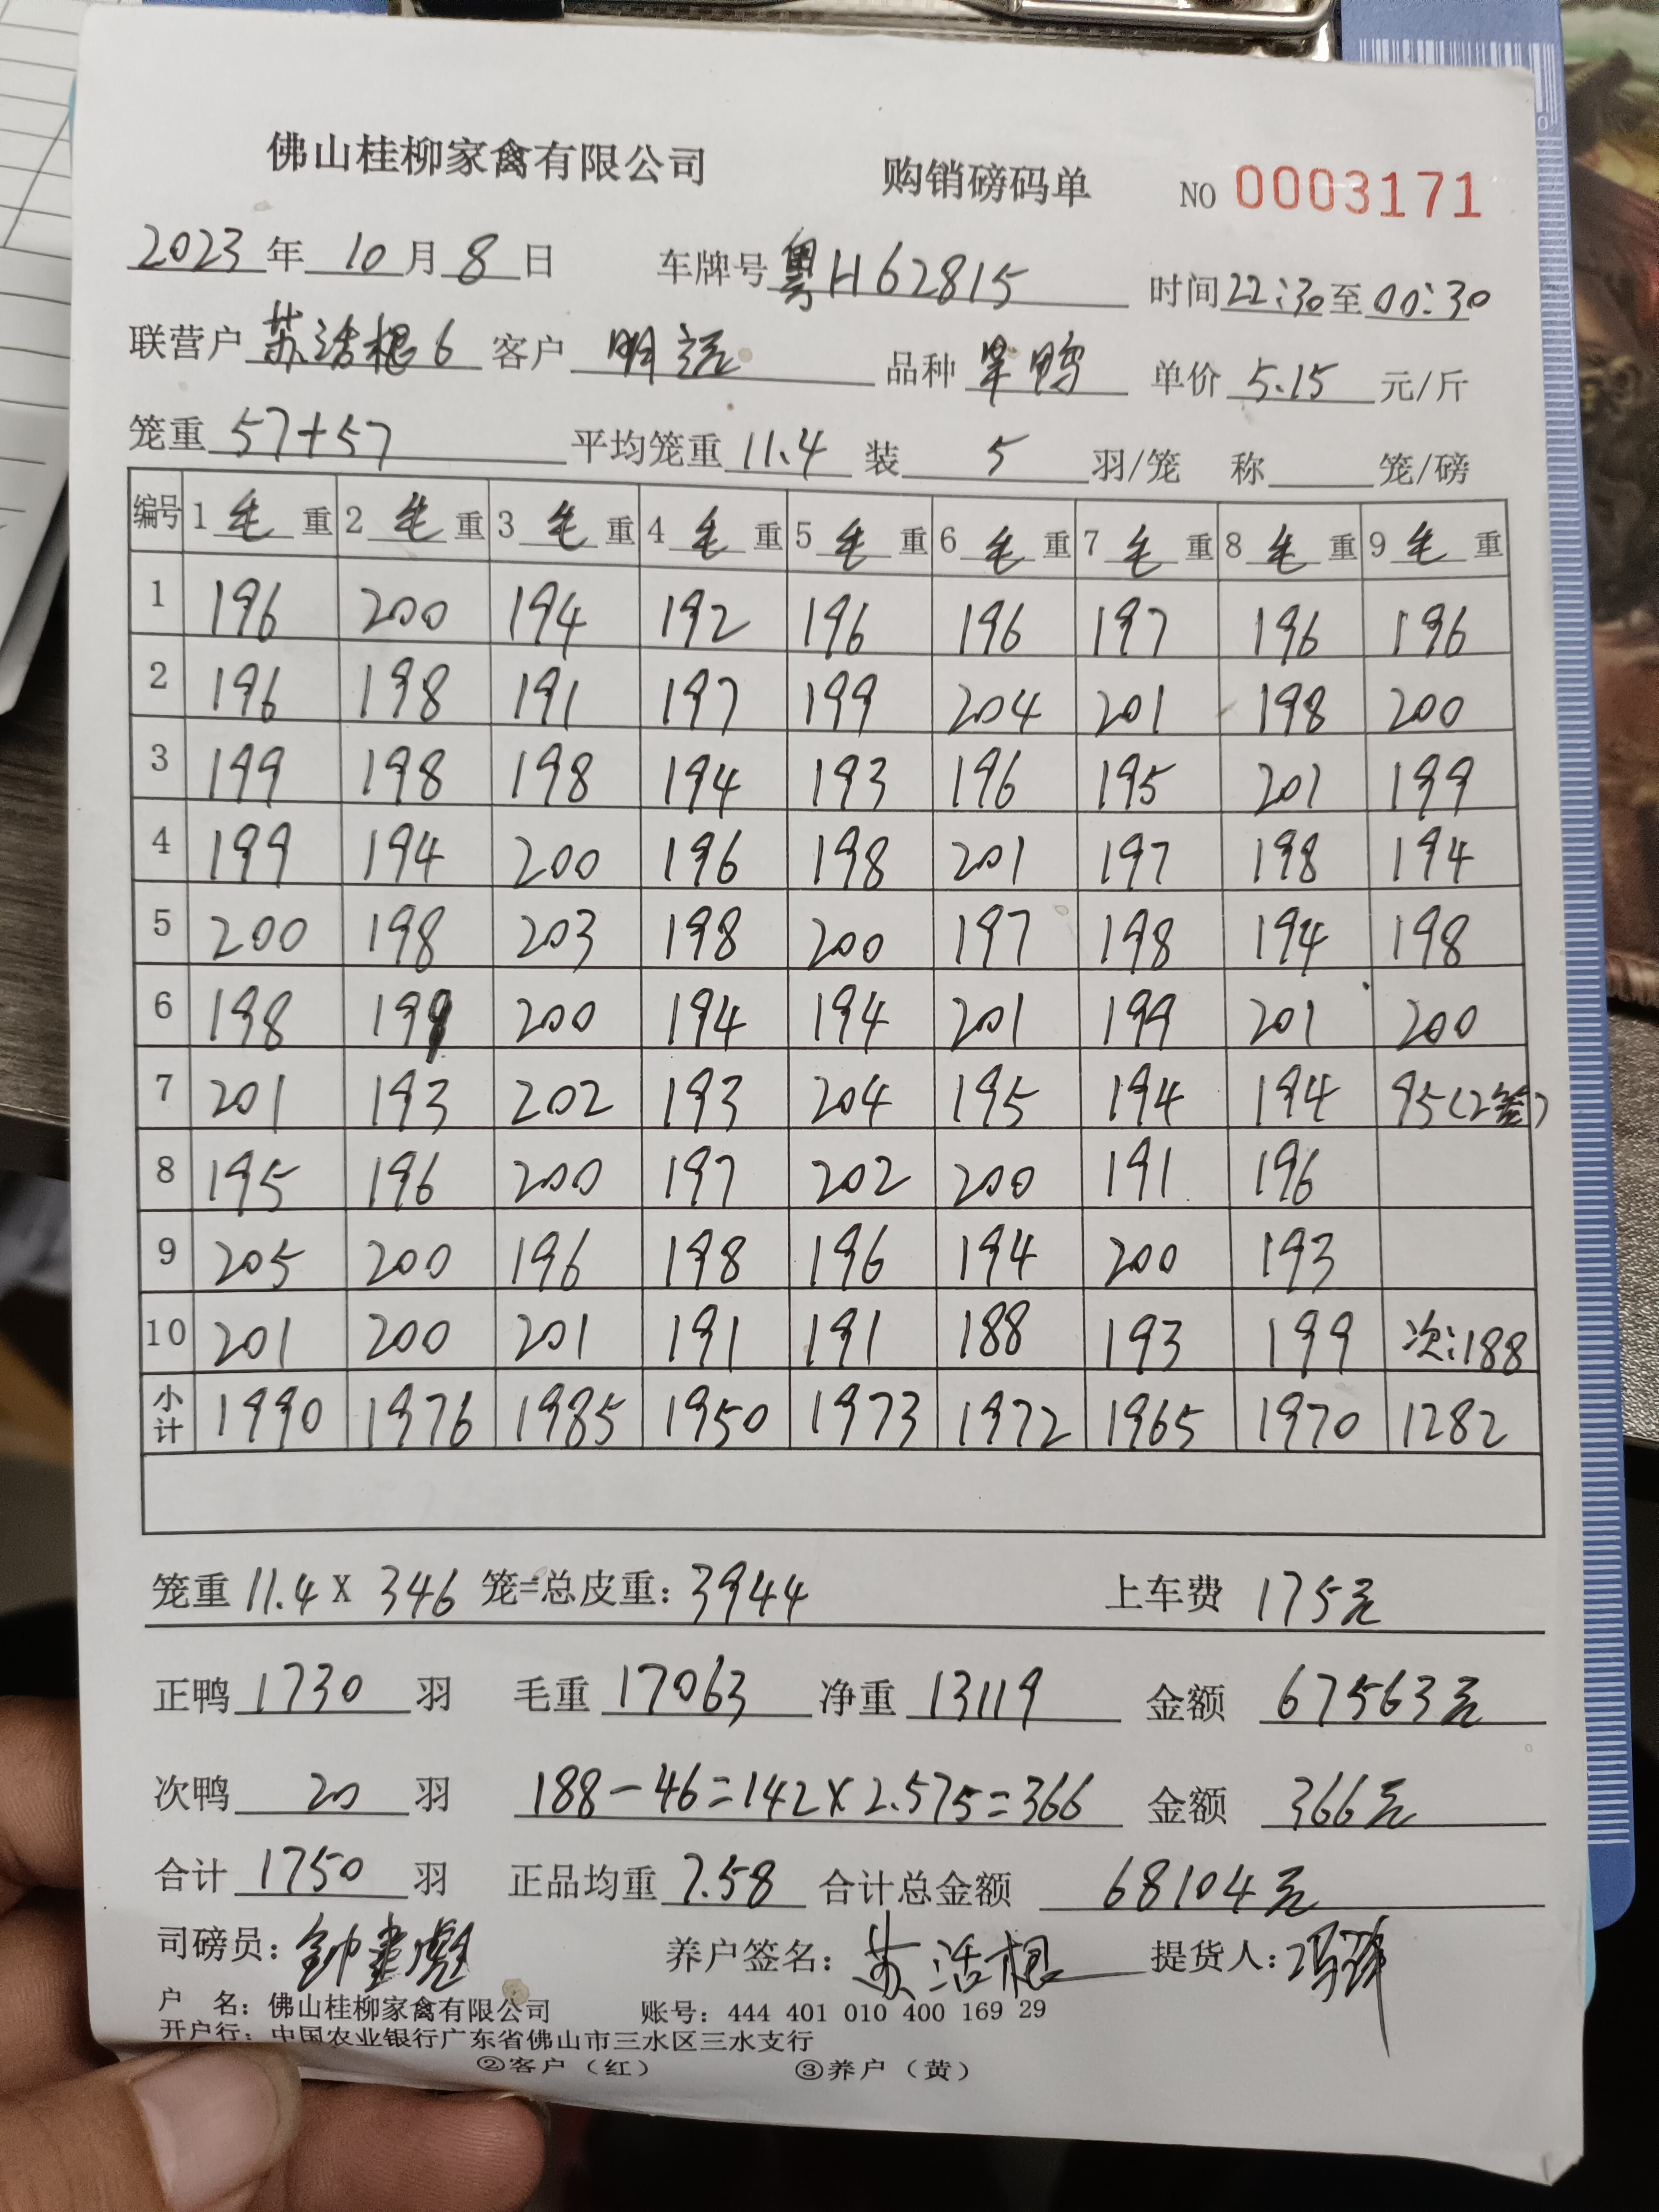 佛山桂柳家禽有限公司 购销磅码单 NO 0003171
2023 年 10 月 8 日 车牌号 粤H62815 时间 22:30 至 00:30
联营户 苏活根6 客户 明远 品种 单价 5.15 元/斤
笼重 57+57 平均笼重 11.4 装 5 羽/笼 称 笼/磅
编号 1 毛 重 2 毛 重 3 毛 重 4 毛 重 5 毛 重 6 毛 重 7 毛 重 8 毛 重 9 毛 重
1 196 200 194 192 196 196 197 196 196
2 196 198 191 197 199 204 201 198 200
3 199 198 198 194 193 196 195 201 199
4 199 194 200 196 198 201 197 198 194
5 200 198 203 198 200 197 198 194 198
6 198 199 200 194 194 201 199 201 200
7 201 193 202 193 204 195 194 194 95(2笼)
8 195 196 200 197 202 200 191 196
9 205 200 196 198 196 194 200 193
10 201 200 201 191 191 188 193 199 次:188
小计 1990 1976 1985 1950 1973 1972 1965 1970 1282
笼重 11.4 X 346 笼=总皮重: 3944 上车费 175元
正鸭 1730 羽 毛重 17063 净重 13119 金额 67563元
次鸭 20 羽 188-46=142×2.575=366 金额 366元
合计 1750 羽 正品均重 7.58 合计总金额 68104元
司磅员: 养户签名: 苏活根 提货人:
户 名: 佛山桂柳家禽有限公司 账号: 444 401 010 400 169 29
开户行: 中国农业银行广东省佛山市三水区三水支行
②客户(红) ③养户(黄)